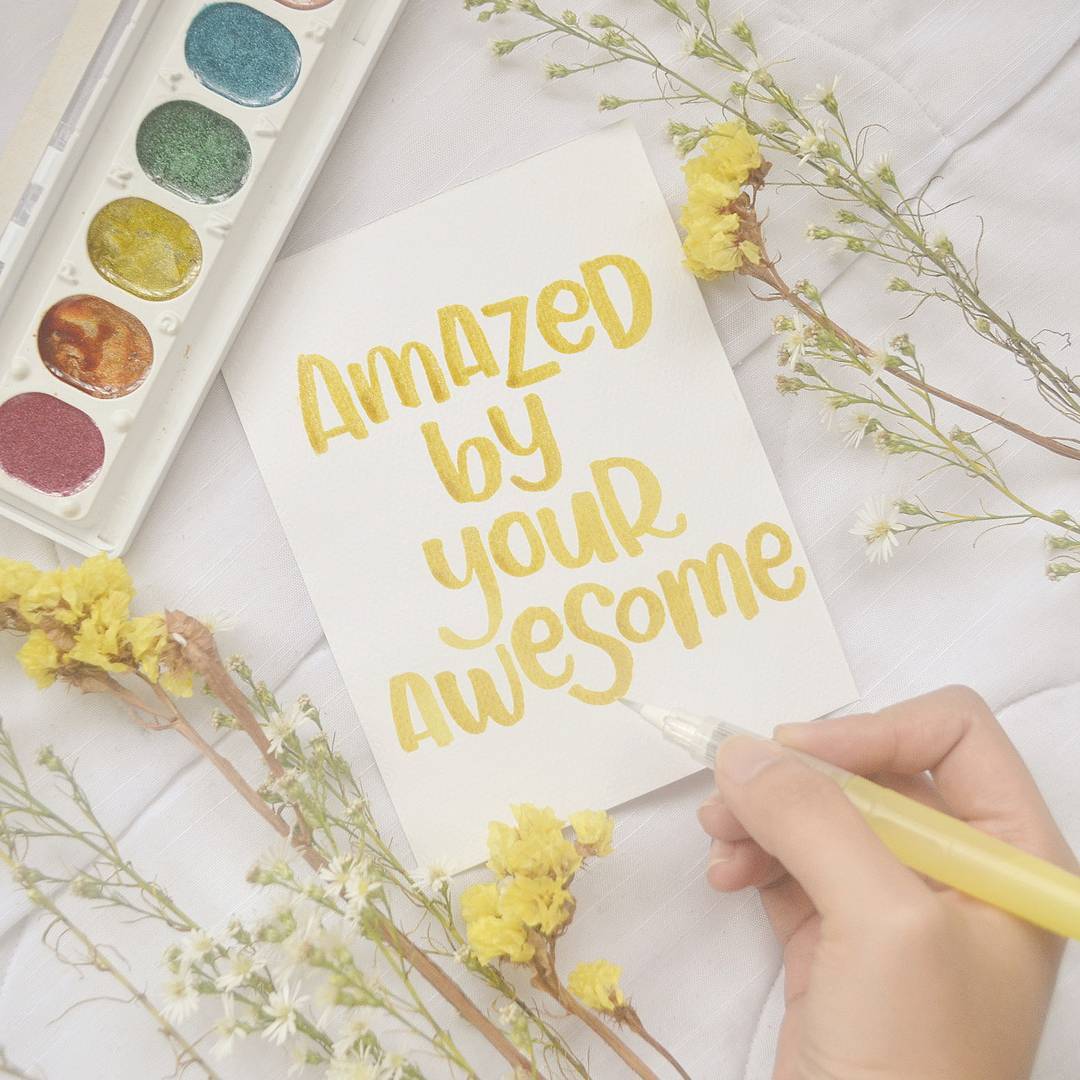 AmAZeD
by
youR
AweSome